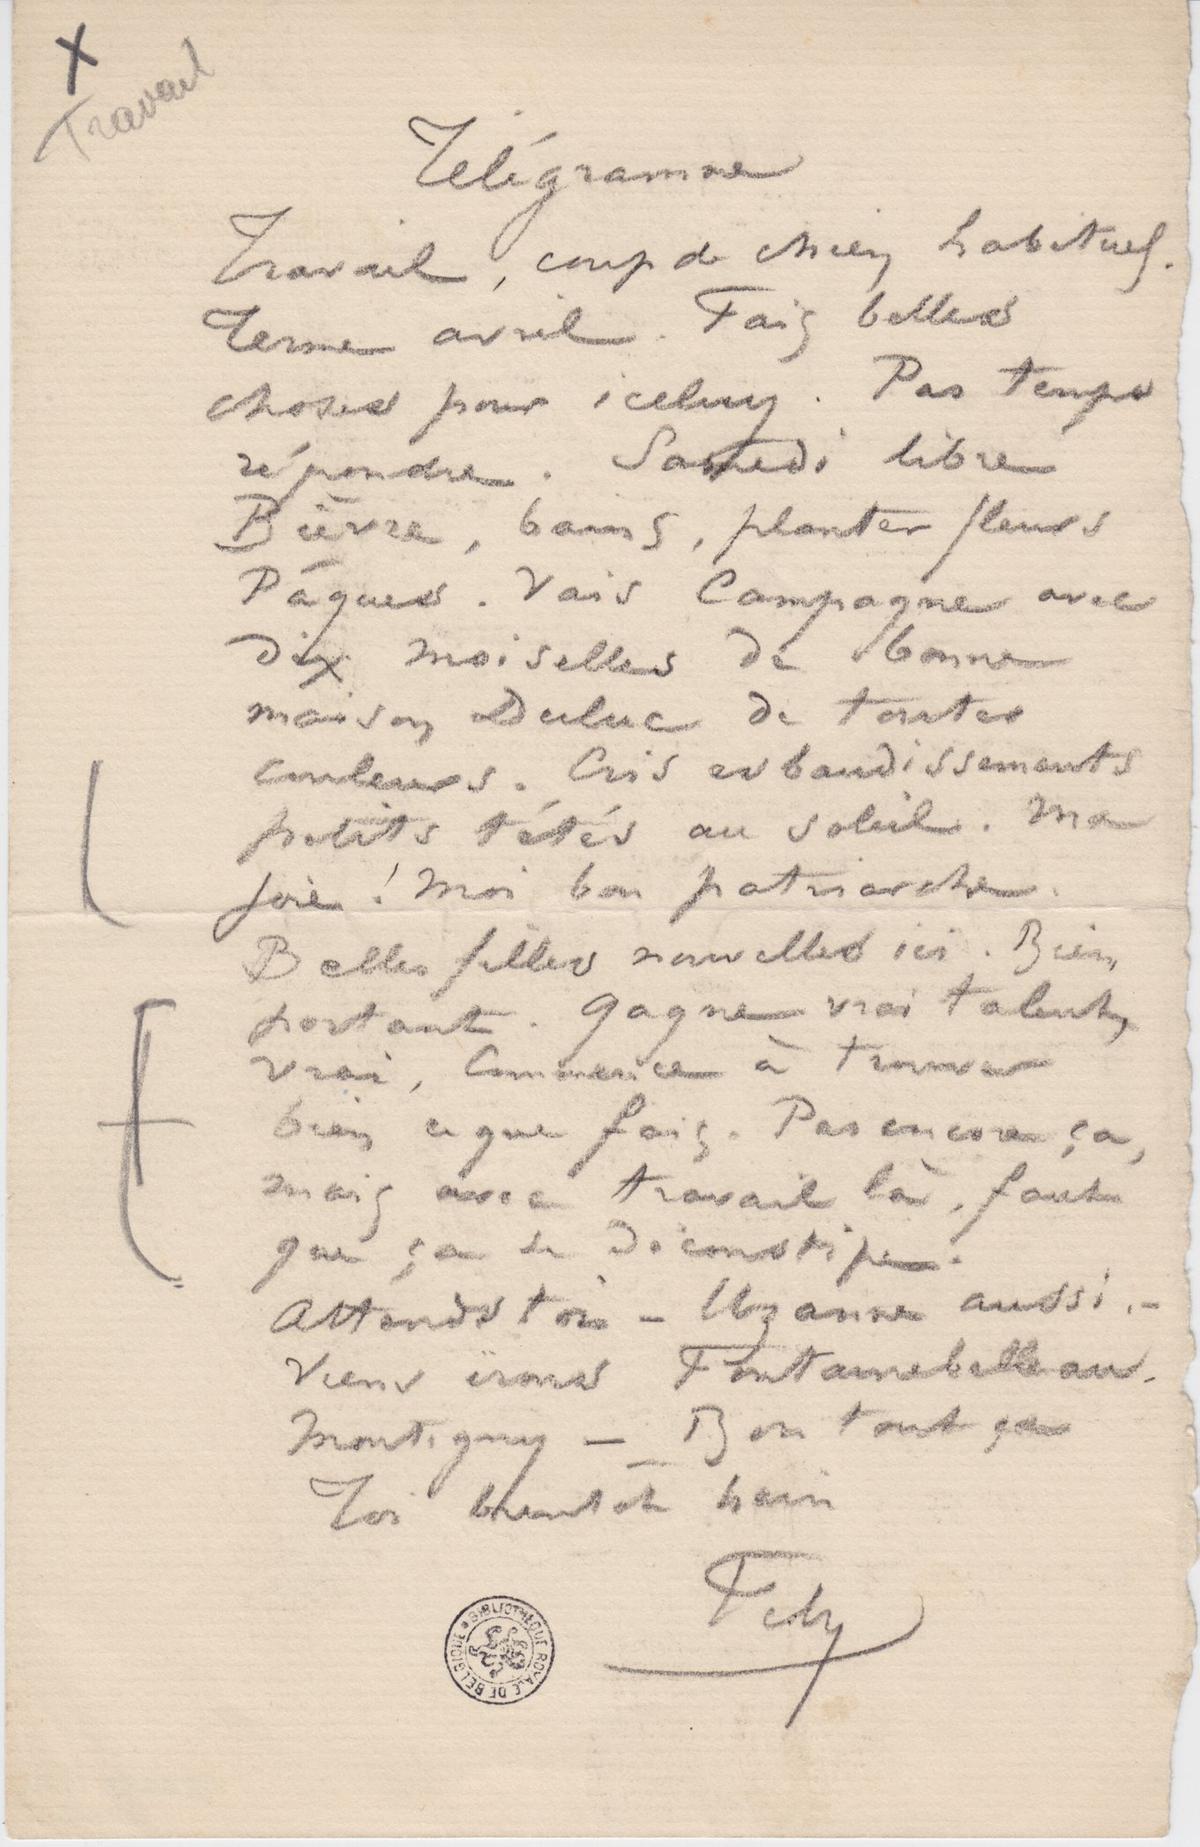 X
Travail
Télégramme
Travail, coup de chien habituel.
Terme avril. Fais belles
choses pour iceluy. Pas temps
répondre. Samedi libre
Bièvre, bains, planter fleurs
Pâques. Vais Campagne avec
dix moiselles de bonne
maison Duluc de toutes
couleurs. Cris esbaudissements
petits tétés au soleil. Ma
joie! Moi bon patriarche.
Belles filles nouvelles ici. Bien
portant. Gagne vrai talent,
vrai, Commence à trouver
bien ce que fais. Pas encore ça,
mais avec travail là, faut
que ça se déconstipe.
Attends toi – Uzanne aussi. –
Viens irons Fontainebelleau.
Montigny – Bon tout ça
Toi bientôt hein
Fély
BIBLIOTHEQUE ROYALE DE BELGIQUE